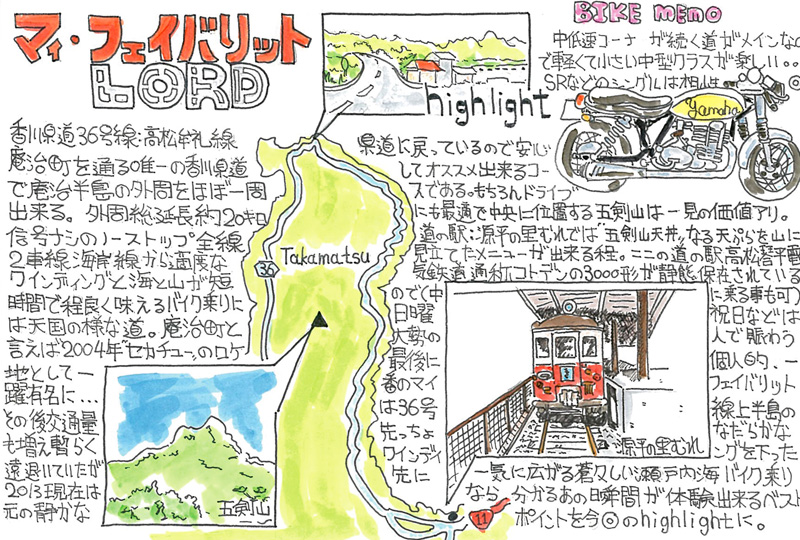 マイ・フェイバリット
LORD
香川県道36号線:高松牟礼線
庵治町を通る唯一の香川県道
で庵治半島の外周をほぼ一周
出来る。外周総延長約20キロ
信号ナシのノーストップ全線
2車線。海岸線から適度な
ワインディングと海と山が短
時間で程良く味えるバイク乗りに
は天国の様な道。庵治町と
言えば2004年"セカチュー"のロケ
地として一
躍有名に…
その後交通量
も増え暫らく
遠退いていたが
2013現在は
元の静かな
五剣山
Takamatsu
36
11
highlight
県道に戻っているので安心
してオススメ出来るコー
スである。もちろんドライブ
にも最適で中央に位置する五剣山は一見の価値アリ。
道の駅:源平の里むれでは"五剣山天丼"なる天ぷらを山に
見立てたメニューが出来る程。ここの道の駅高松琴平電
気鉄道通称コトデンの3000形が静態保存されている
ので(中に乗る車も可)
日曜祝日などは
大勢の人で賑わう
最後に個人的、一
番のマイフェイバリット
は36号線上半島の
先っちょなだらかな
ワインディングを下った
先に
一気に広がる蒼々しい瀬戸内海バイク乗り
なら分かるあの瞬間が体験出来るベスト
ポイントを今◎のhighlightに。
源平の里むれ
BIKE MEMO
中低速コーナーが続く道がメインなの
で軽くて小さい中型クラスが楽しい。。
SRなどのシングルは相性◎
Yamaha